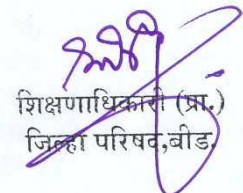 शिक्षणाधिकारी (प्रा.)
जिल्हा परिषद,बीड.